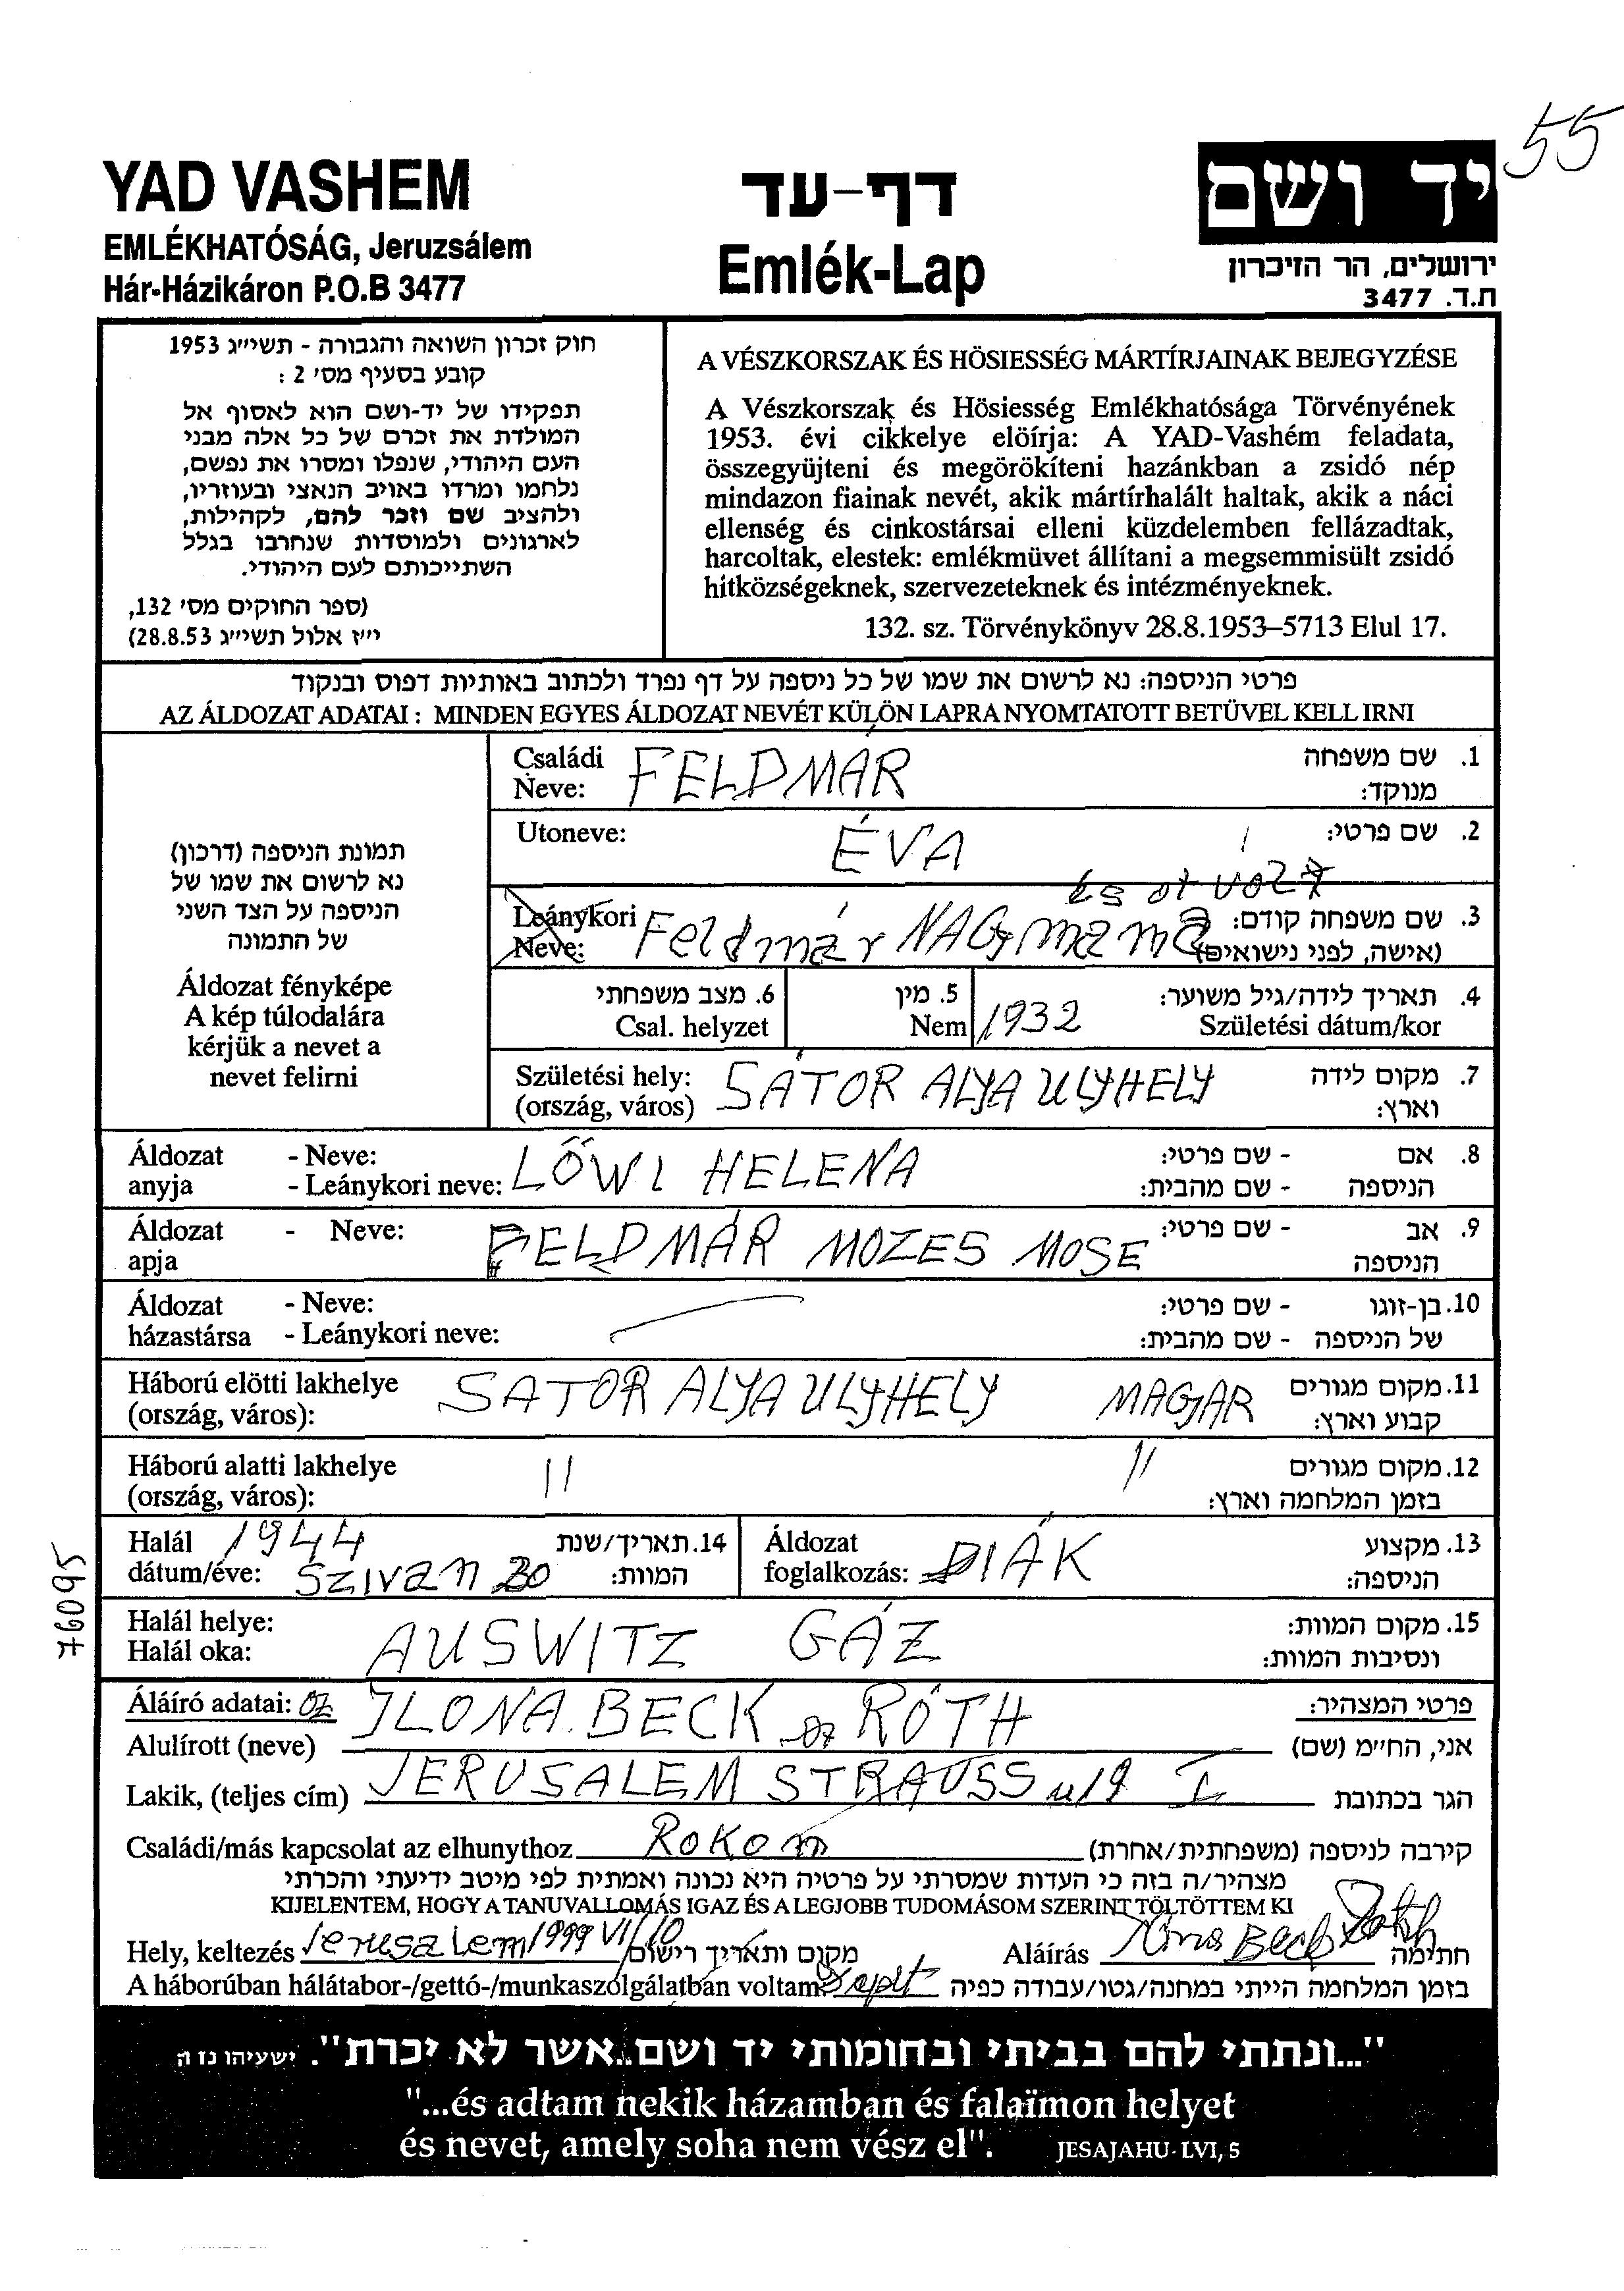 55
YAD VASHEM
EMLÉKHATÓSÁG, Jeruzsálem
Hár-Házikáron P.O.B 3477
דף-עד
Emlék-Lap
יד ושם
ירושלים, הר הזיכרון
ת.ד. 3477
חוק זכרון השואה והגבורה - תשי״ג 1953
קובע בסעיף מס׳ 2 :
תפקידו של יד-ושם הוא לאסוף אל
המולדת את זכרם של כל אלה מבני
העם היהודי, שנפלו ומסרו את נפשם,
נלחמו ומרדו באויב הנאצי ובעוזריו,
ולהציב שם וזכר להם, לקהילות,
לארגונים ולמוסדות שנחרבו בגלל
השתייכותם לעם היהודי.
(ספר החוקים מס׳ 132,
י״ז אלול תשי״ג 28.8.53)
A VÉSZKORSZAK ÉS HÖSIESSÉG MÁRTÍRJAINAK BEJEGYZÉSE
A Vészkorszak és Hösiesség Emlékhatósága Törvényének
1953. évi cikkelye elöírja: A YAD-Vashém feladata,
összegyüjteni és megörökíteni hazánkban a zsidó nép
mindazon fiainak nevét, akik mártírhalált haltak, akik a náci
ellenség és cinkostársai elleni küzdelemben fellázadtak,
harcoltak, elestek: emlékmüvet állítani a megsemmisült zsidó
hitközségeknek, szervezeteknek és intézményeknek.
132. sz. Törvénykönyv 28.8.1953–5713 Elul 17.
פרטי הניספה: נא לרשום את שמו של כל ניספה על דף נפרד ולכתוב באותיות דפוס ובנקוד
AZ ÁLDOZAT ADATAI : MINDEN EGYES ÁLDOZAT NEVÉT KÜLÖN LAPRA NYOMTATOTT BETÜVEL KELL IRNI
תמונת הניספה (דרכון)
נא לרשום את שמו של
הניספה על הצד השני
של התמונה
Áldozat fényképe
A kép túlodalára
kérjük a nevet a
nevet felirni
Családi Neve: FELDMÁR 1. שם משפחה מנוקד:
Utoneve: ÉVA 2. שם פרטי:
és ot volt
Leánykori Neve: Feldmár NAGymama 3. שם משפחה קודם: (אישה, לפני נישואים)
6. מצב משפחתי Csal. helyzet 5. מין Nem 1932 4. תאריך לידה/גיל משוער: Születési dátum/kor
Születési hely: (ország, város) SÁTOR ALJA ULYHELY 7. מקום לידה וארץ:
Áldozat anyja - Neve: - Leánykori neve: LŐWI HELENA 8. אם הניספה - שם פרטי: - שם מהבית:
Áldozat apja - Neve: FELDMÁR MOZES MOSE 9. אב הניספה - שם פרטי:
Áldozat házastársa - Neve: - Leánykori neve: 10. בן-זוגו של הניספה - שם פרטי: - שם מהבית:
Háború elötti lakhelye (ország, város): SATOR ALJA ULYHELY MAGJAR 11. מקום מגורים קבוע וארץ:
Háború alatti lakhelye (ország, város): 11 11 12. מקום מגורים בזמן המלחמה וארץ:
Halál dátum/éve: 1944 Szivan 20 14. תאריך/שנת המוות: Áldozat foglalkozás: DIÁK 13. מקצוע הניספה:
Halál helye: Halál oka: AUSWITZ GÁZ 15. מקום המוות: ונסיבות המוות:
Áláíró adatai: פרטי המצהיר:
Alulírott (neve) ILONA BECK RÓTH אני, החי״מ (שם)
Lakik, (teljes cím) JERUSALEM STRAUSS u/9 I הגר בכתובת
Családi/más kapcsolat az elhunythoz Rokon קירבה לניספה (משפחתית/אחרת)
מצהיר/ה בזה כי העדות שמסרתי על פרטיה היא נכונה ואמתית לפי מיטב ידיעתי והכרתי
KIJELENTEM, HOGY A TANUVALLOMÁS IGAZ ÉS A LEGJOBB TUDOMÁSOM SZERINT TÖLTÖTTEM KI
Hely, keltezés Jerusalem 1999 VI/10 מקום ותאריך רישום Aláírás Ilona Beck Roth חתימה
A háborúban hálátabor-/gettó-/munkaszolgálatban voltam בזמן המלחמה הייתי במחנה/גטו/עבודה כפיה
76095
"...ונתתי להם בביתי ובחומותי יד ושם..אשר לא יכרת". ישעיהו נו ה
"...és adtam nekik házamban és falaïmon helyet
és nevet, amely soha nem vész el". JESAJAHU- LVI, 5